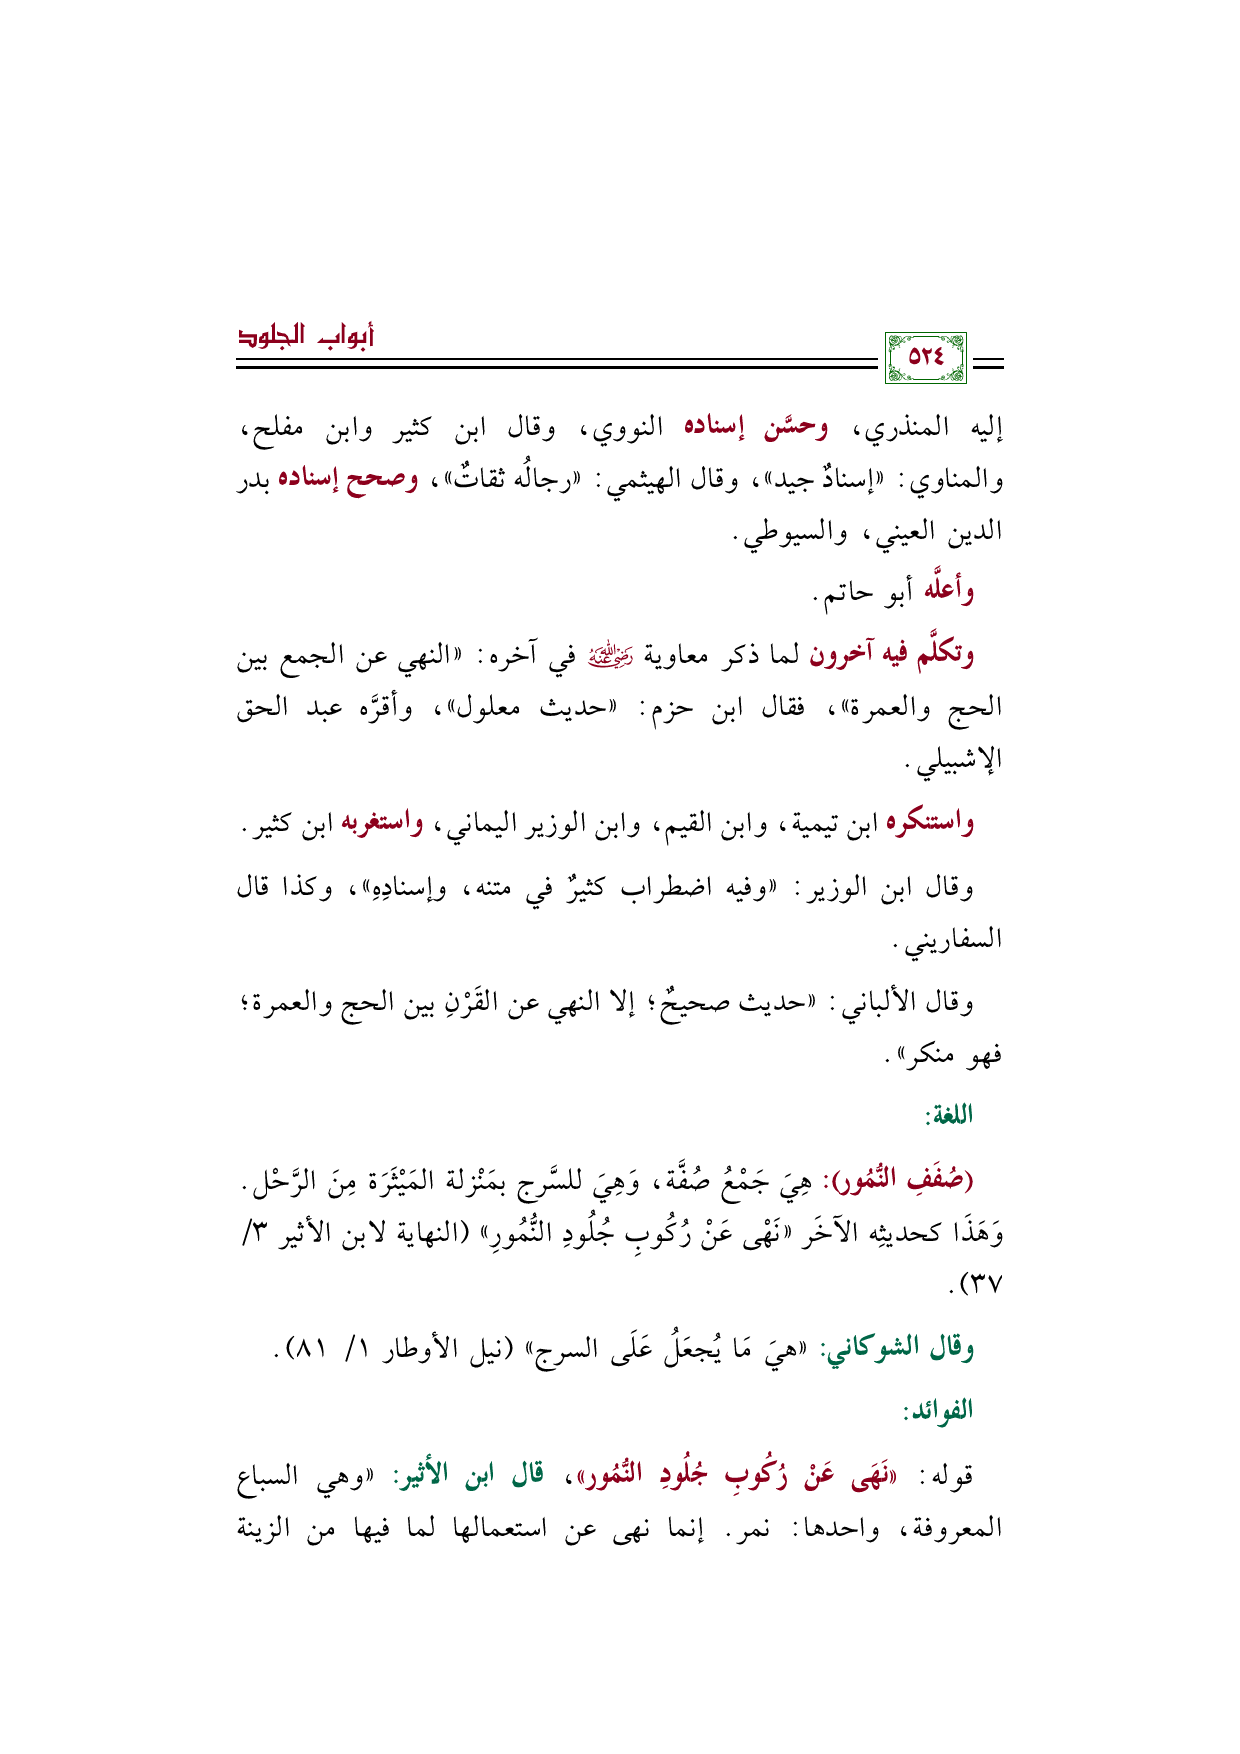 أبواب الجلود
٥٢٤
إليه المنذري، وحسَّن إسناده النووي، وقال ابن كثير وابن مفلح،
والمناوي: «إسنادٌ جيد»، وقال الهيثمي: «رجالُه ثقاتٌ»، وصحح إسناده بدر
الدين العيني، والسيوطي.
وأعلَّه أبو حاتم.
وتكلَّم فيه آخرون لما ذكر معاوية رضي الله عنه في آخره: «النهي عن الجمع بين
الحج والعمرة»، فقال ابن حزم: «حديث معلول»، وأقرَّه عبد الحق
الإشبيلي.
واستنكره ابن تيمية، وابن القيم، وابن الوزير اليماني، واستغربه ابن كثير.
وقال ابن الوزير: «وفيه اضطراب كثيرٌ في متنه، وإسنادِهِ»، وكذا قال
السفاريني.
وقال الألباني: «حديث صحيحٌ؛ إلا النهي عن القَرْنِ بين الحج والعمرة؛
فهو منكر».
اللغة:
(صُفَفِ النُّمُور): هِيَ جَمْعُ صُفَّة، وَهِيَ للسَّرج بمَنْزلة المَيْثَرَة مِنَ الرَّحْل.
وَهَذَا كحديثِه الآخَر «نَهْى عَنْ رُكُوبِ جُلُودِ النُّمُورِ» (النهاية لابن الأثير ٣/
٣٧).
وقال الشوكاني: «هيَ مَا يُجعَلُ عَلَى السرج» (نيل الأوطار ١/ ٨١).
الفوائد:
قوله: «نَهَى عَنْ رُكُوبِ جُلُودِ النُّمُور»، قال ابن الأثير: «وهي السباع
المعروفة، واحدها: نمر. إنما نهى عن استعمالها لما فيها من الزينة